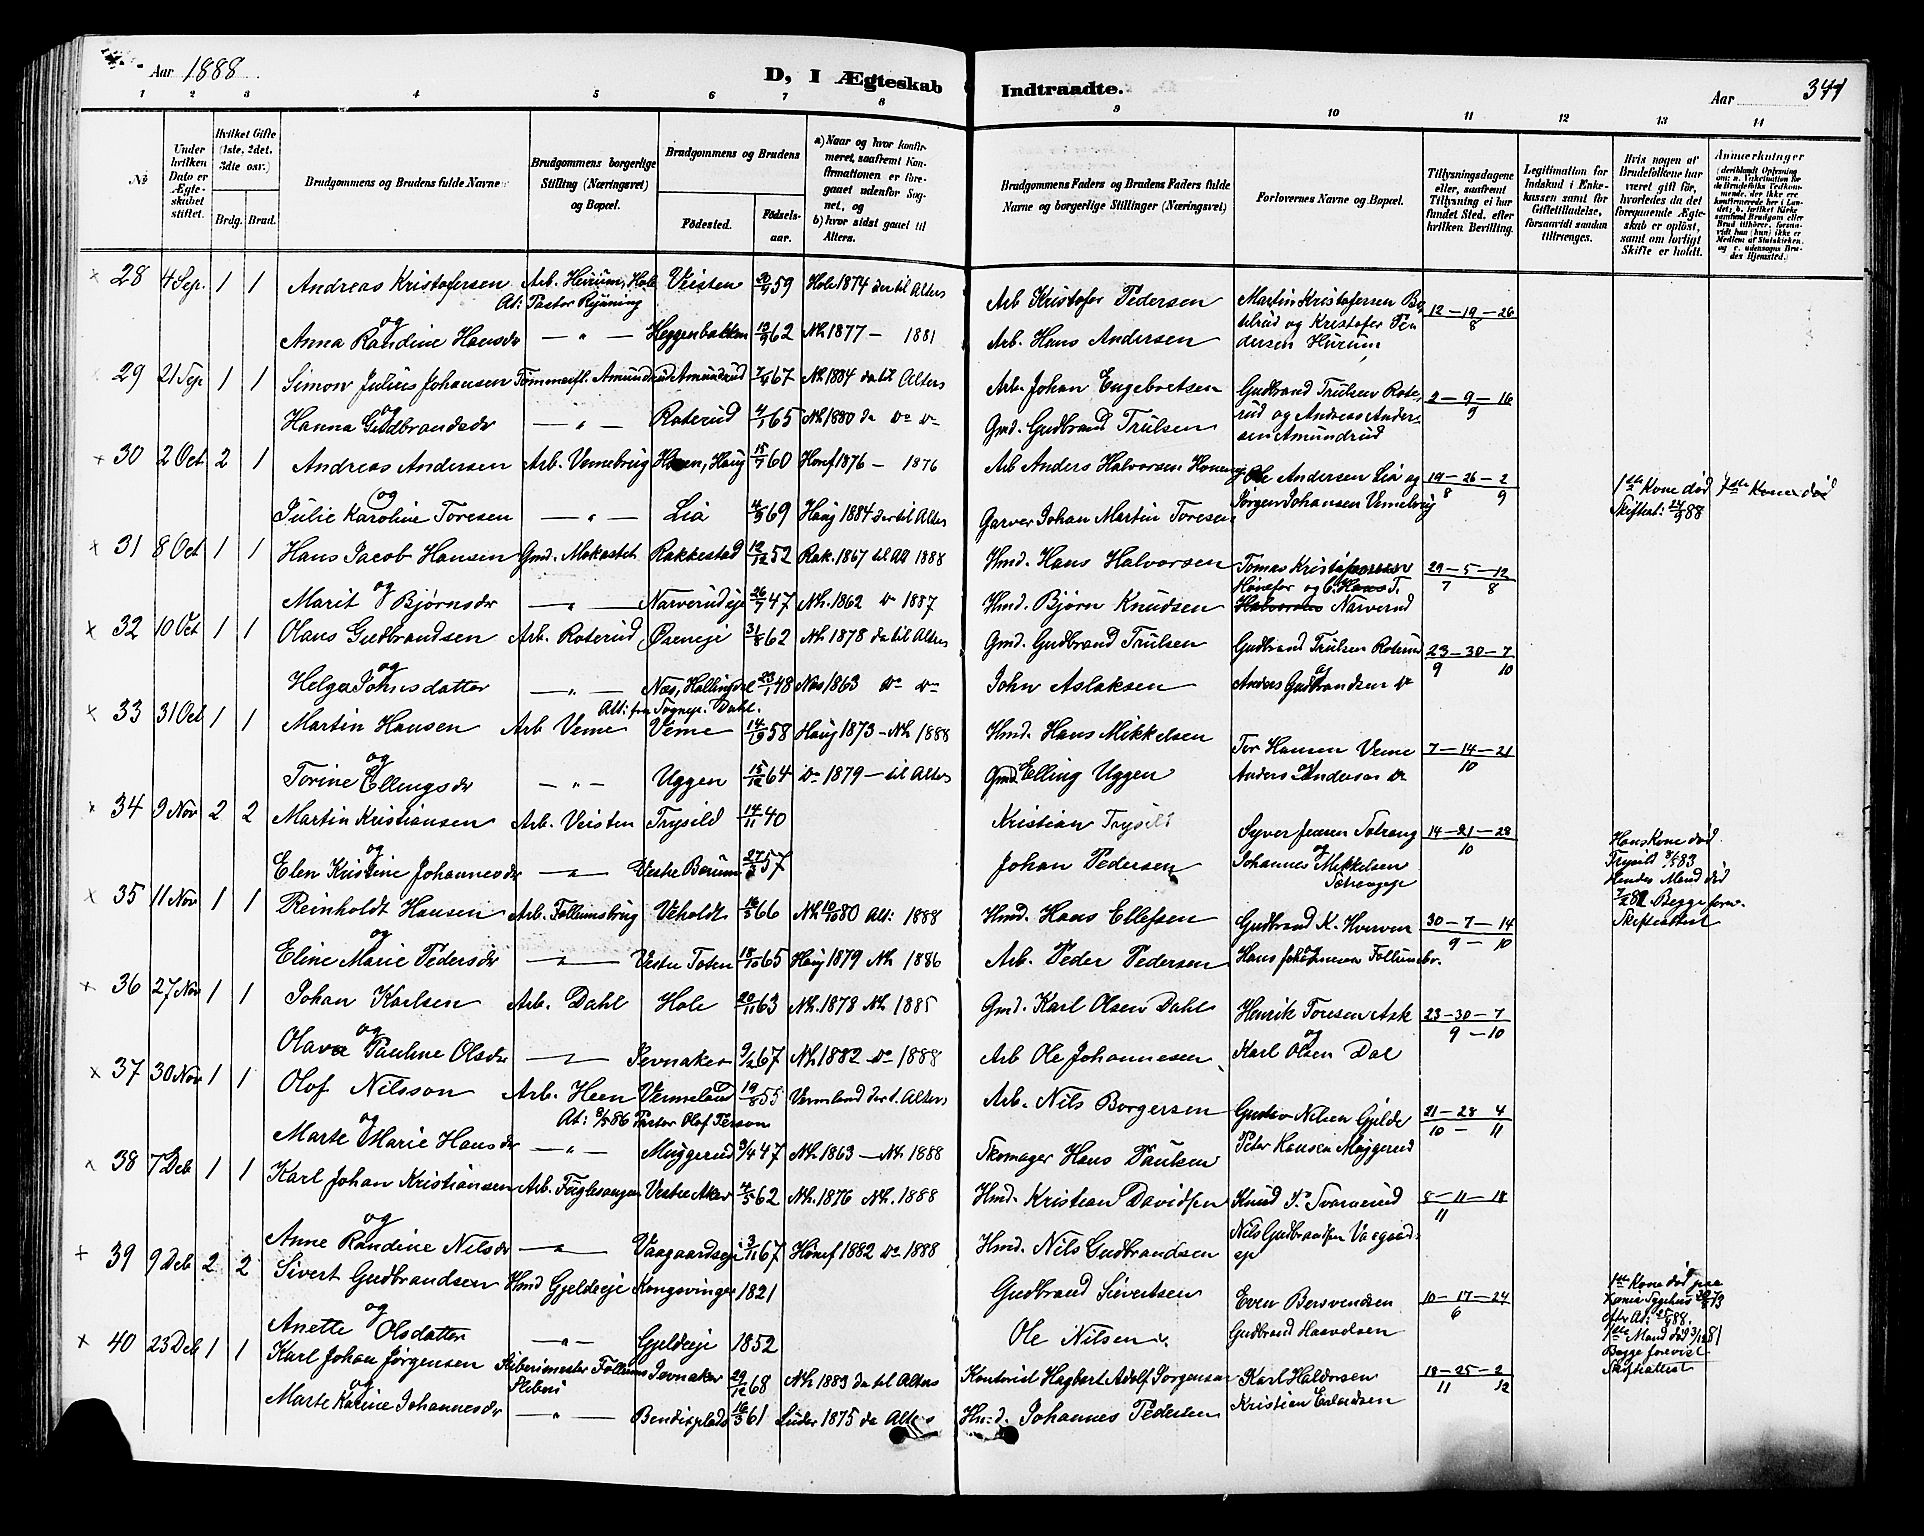 Aar 1888
D, I Ægteskab Indtraadte.
Aar 341
1 2 3 4 5 6 7 8 9 10 11 12 13 14
No
Under hvilken Dato er Ægteskabet stiftet.
Hvilket Gifte (1ste, 2det, 3die osv.)
Brdg. Brud.
Brudgommens og Brudens fulde Navne
Brudgommens borgerlige Stilling (Næringsvei) og Bopæl.
Brudgommens og Brudens
Fødested. Fødselsaar.
a) Naar og hvor konfirmeret, saafremt Konfirmationen er foregaaet udenfor Sognet, og b) hvor sidst gaaet til Alters.
Brudgommens Faders og Brudens Faders fulde Navne og borgerlige Stillinger (Næringsvei)
Forlovernes Navne og Bopæl.
Tillysningsdagene eller, saafremt Tillysning ei har fundet Sted, efter hvilken Bevilling.
Legitimation for Indskud i Enkekassen samt for Giftetilladelse, forsaavidt saadan tiltrænges.
Hvis nogen af Brudefolkene har været gift før, hvorledes da det foregaaende Ægteskab er opløst, samt om lovligt Skifte er holdt.
28 4 Sep. 1 1 Andreas Kristofersen Arb. Heirum, Hole Veisten 59 Hole 1874 der til Alters Arb Kristofer Pedersen Martin Kristofersen 12-19-26 8
At: Pastor Bjøning
og
Anna Randine Hansdr — " — Heggenbakken 62 Nh 1877 — 1881 Arb. Hans Andersen og Kristofer Pedersen Hurum
29 21 Sep 1 1 Simon Julius Johansen Tømmerfl. Amundrud Amundrud 67 Nh 1884 da til Alters Arb. Johan Engebretsen Gudbrand Trulsen Roterud og Andreas Andersen Amundrud 2-9-16 9
og
Hanna Gudbrandsdr — " — Roterud 65 Nh 1880 da do do Gmd. Gudbrand Trulsen
30 2 Oct 2 1 Andreas Andersen Arb. Vemebrug Heen, Haug 60 Hønef 1876 — 1876 Arb Anders Halvorsen Ole Andersen Lia og Jørgen Johansen Vemebrug 19-26-2 8 9 1ste Kone død Skifteat: 88 1ste Kone død
og
Julie Karoline Toresen — " — Lia 69 Haug 1884 der til Alters Garver Johan Martin Toresen
31 8 Oct 1 1 Hans Jacob Hansen Gmd. Mokastet Rakkestad 52 Rak. 1867 til Alt 1888 Hmd. Hans Halvorsen Tomas Kristofersen Hønefos og Narverud 29-5-12 7 8
og
Marit Bjørnsdr — " — Narverudeje 47 Nh. 1862 do 1887 Hmd. Bjørn Knudsen
32 10 Oct 1 1 Hans Gudbrandsen Arb. Roterud Øreneje 62 Nh 1878 da til Alters Gmd. Gudbrand Trulsen Gudbrand Trulsen Roterud 23-30-7 9 10
og
Helga Johnsdatter — " — Næs, Hallingdal 48 Næs 1863 do do John Aslaksen Anders Gudbrandsen do
Alt: fra Dahl.
33 31 Oct 1 1 Martin Hansen Arb Veme Veme 58 Haug 1873 – Nh 1888 Hmd. Hans Mikkelsen Tor Hansen Veme 7-14-21 10
og
Torine Ellingsdr — " — Uggen 64 do 1879 — til Alters Gmd. Elling Uggen Anders Andersen do
34 9 Nov 2 2 Martin Kristiansen Arb. Veisten Trysild 14/11 40 Kristian Trysild Syver Jensen 14-21-28 10
og
Elen Kristine Johannesdr — " — Vestre Bærum 57 Johan Pedersen Johannes Mikkelsen
Hans Kone død Trysild 83 Hendes Mand død Begge forev. Skifteattest
35 11 Nov 1 1 Reinholdt Hansen Arb. Follumsbrug Veholdt 66 Nh 80 Alt: 1888 Hmd. Hans Ellefsen Gudbrand K. Hverven 30-7-14 9-10
og
Eline Marie Pedersdr — " — Vestre Toten 65 Haug 1879 Nh 1886 Arb. Peder Pedersen Hans Johannesen Follumsbr.
36 27 Nov 1 1 Johan Karlsen Arb. Dahl Hole 63 Nh. 1878 Nh. 1885 Gmd. Karl Olsen Dahl Henrik Toresen Ask 23-30-7 9-10
og
Olava Pauline Olsdr — " — Jevnaker 67 Nh 1882 do 1888 Arb Ole Johannesen Karl Olsen Dal
37 30 Nov 1 1 Olof Nilsson Arb. Heen Vermeland 55 Vermland der t. Alters Arb. Nils Borgersen Gustav Nilsen Gjelde 21-28 4 10-11
At: 86 Pastor Olof
og
Marte Marie Hansdr — " — Muggerud 47 Nh 1863 — Nh 1888 Skomager Hans Paulsen Peter Hansen Muggerud
38 7 Deb 1 1 Karl Johan Kristiansen Arb. Fuglesangen Vestre Aker 62 Nh. 1876 Nh. 1888 Hmd. Kristian Davidsen Knud Svarverud 8-11-18 11
og
Anne Randine Nilsdr — " — Vaagaardseje 67 Hønef 1882 do 1888 Hmd. Nils Gudbrandsen Nils Gudbrandsen Vaagaardsej
39 9 Deb 2 2 Sivert Gudbrandsen Hmd Gjeldeeje Kongsvinger 1821 Gudbrand Sivertsen Even Bersvendsen 10-17-24 6
og
Anette Olsdatter — " — Gjeldeeje 1852 Ole Nilsen Gudbrand Haavelsen
1ste Kone død paa Sygehus 73 efter At: 88. 1ste Mand død 81 Begge forevist Skifteattest
40 23 Deb 1 1 Karl Johan Jørgensen Sliberimester Follums Sliberi Jevnaker 68 Nh 1883 da til Alters Kontorist Hagbart Adolf Jørgensen Karl Haldorsen 18-25-2 11 12
og
Marte Karine Johannesdr — " — Bendixplads 61 Lunder 1875 da Alters Hmd. Johannes Pedersen Kristian Erlandsen